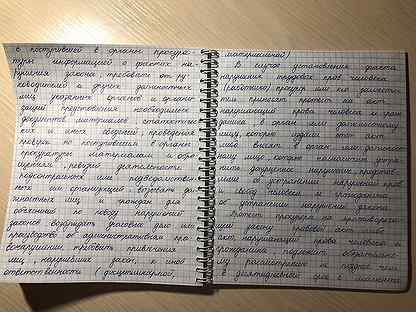 с поступившей в органы прокура-
туры информацией о фактах на-
рушения закона, требовать от ру-
ководителей и других должностных
лиц указанных органов и органи-
заций представления необходимых
документов, материалов, статистичес-
ких и иных сведений, проведения
проверок по поступившим в органы
прокуратуры материалам и обра-
щениям, ревизий деятельности
подконтрольных или подведомствен-
ных им организаций; вызывать дол-
жностных лиц и граждан для
объяснений по поводу нарушений
законов; возбуждать уголовное дело или
производство об административном пра-
вонарушении, требовать привлечения
лиц, нарушивших закон, к иной
ответственности (дисциплинарной,
материальной)
В случае установления факта
нарушения трудовых прав человека
(работника) прокурор или его заместитель
приносит протест на акт,
нарушающий права человека и граж-
данина в орган или должностному
лицу, которые издали этот акт,
либо в орган или должност-
ному лицу, которые
допущенное нарушение, представ-
об устранении нарушений прав
человека и гражданина
об устранении нарушений закона.
Протест прокурора на противоре-
чащий закону правовой акт либо
акт, нарушающий права человека и
гражданина подлежит обязательно-
му рассмотрению не позднее чем
в десятидневный срок с момента